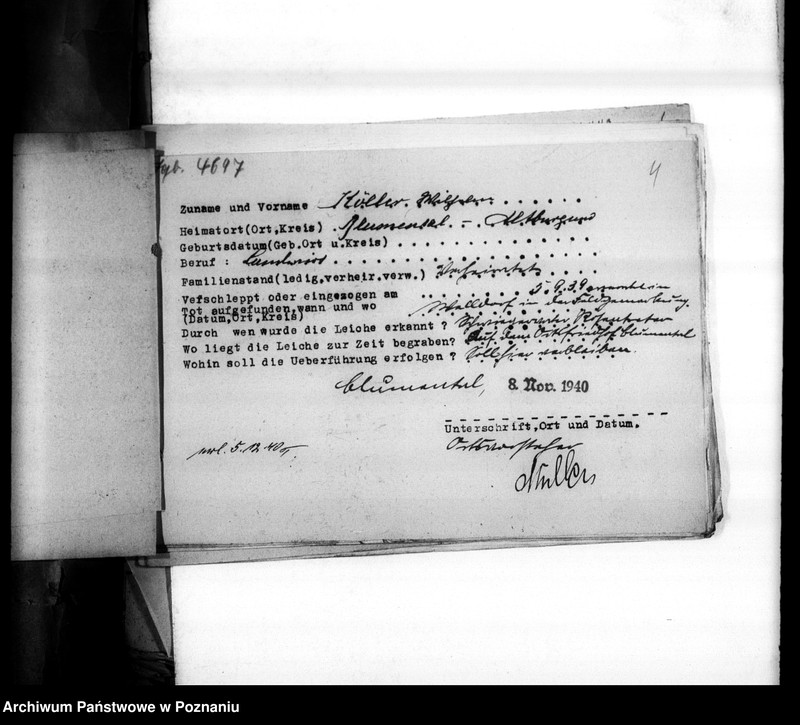 4697
4
Zuname und Vorname Köller, Wilhelm
Heimatort(Ort,Kreis) Blumental - Altburgund
Geburtsdatum(Geb.Ort u.Kreis)
Beruf : Landwirt
Familienstand(ledig,verheir.verw.) Verheiratet
Verschleppt oder eingezogen am 5.9.39
Tot aufgefunden,wann und wo
(Datum,Ort,Kreis) Walldorf in der
Durch wen wurde die Leiche erkannt ?
Wo liegt die Leiche zur Zeit begraben? Auf dem Ortsfriedhof Blumental
Wohin soll die Ueberführung erfolgen ? Soll hier verbleiben.
Blumental, 8. Nov. 1940
Unterschrift,Ort und Datum.
Ortsvorsteher
Müller
5.12.40
Archiwum Państwowe w Poznaniu